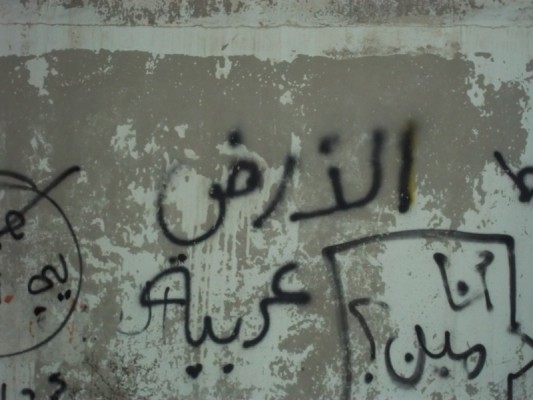 الأرض
عربية
أنا
مين؟